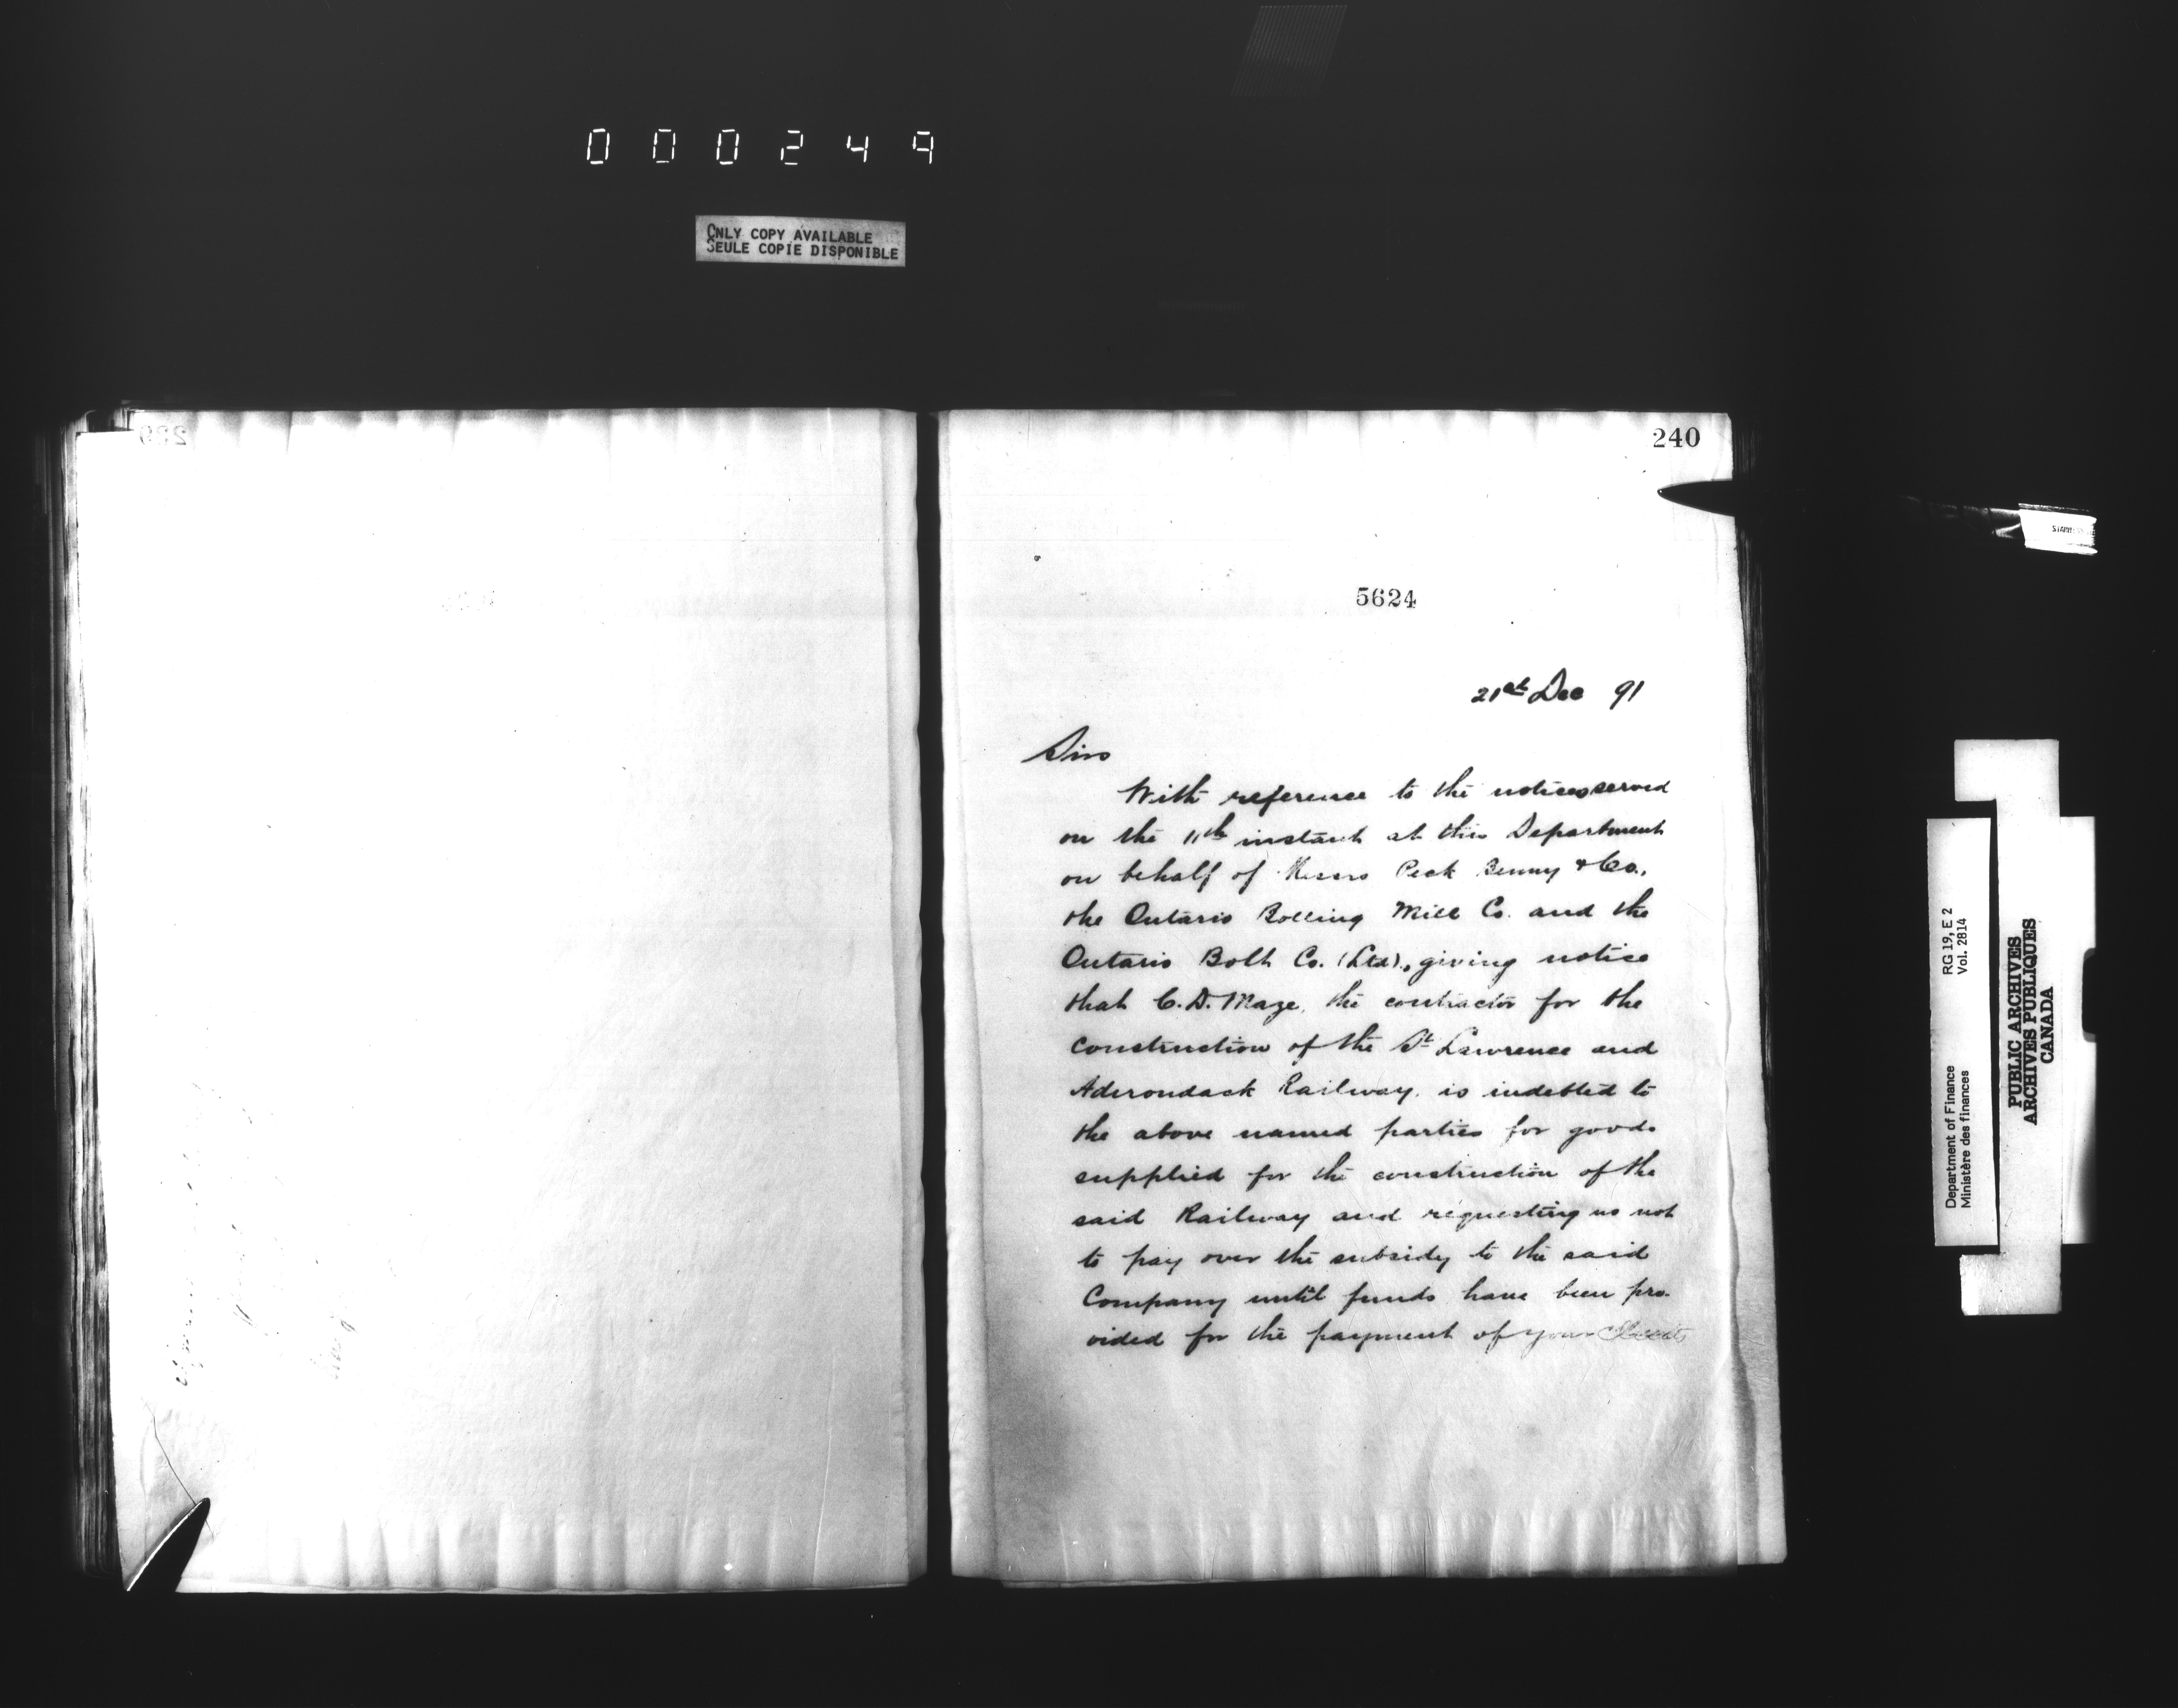 000249
ONLY COPY AVAILABLE
SEULE COPIE DISPONIBLE
239
240
5624
21st Dec 91
Sirs
With reference to the notices served
on the 11th instant at this Department
on behalf of Messrs Peck Benny & Co.,
the Ontario Rolling Mill Co. and the
Ontario Bolt Co. (Ltd), giving notice
that C. D. Maze, the contractor for the
construction of the St Lawrence and
Aderondack Railway, is indebted to
the above named parties for goods
supplied for the construction of the
said Railway and requesting us not
to pay over the subsidy to the said
Company until funds have been pro-
vided for the payment of your
Department of Finance RG 19, E 2
Ministère des finances Vol. 2814
PUBLIC ARCHIVES
ARCHIVES PUBLIQUES
CANADA